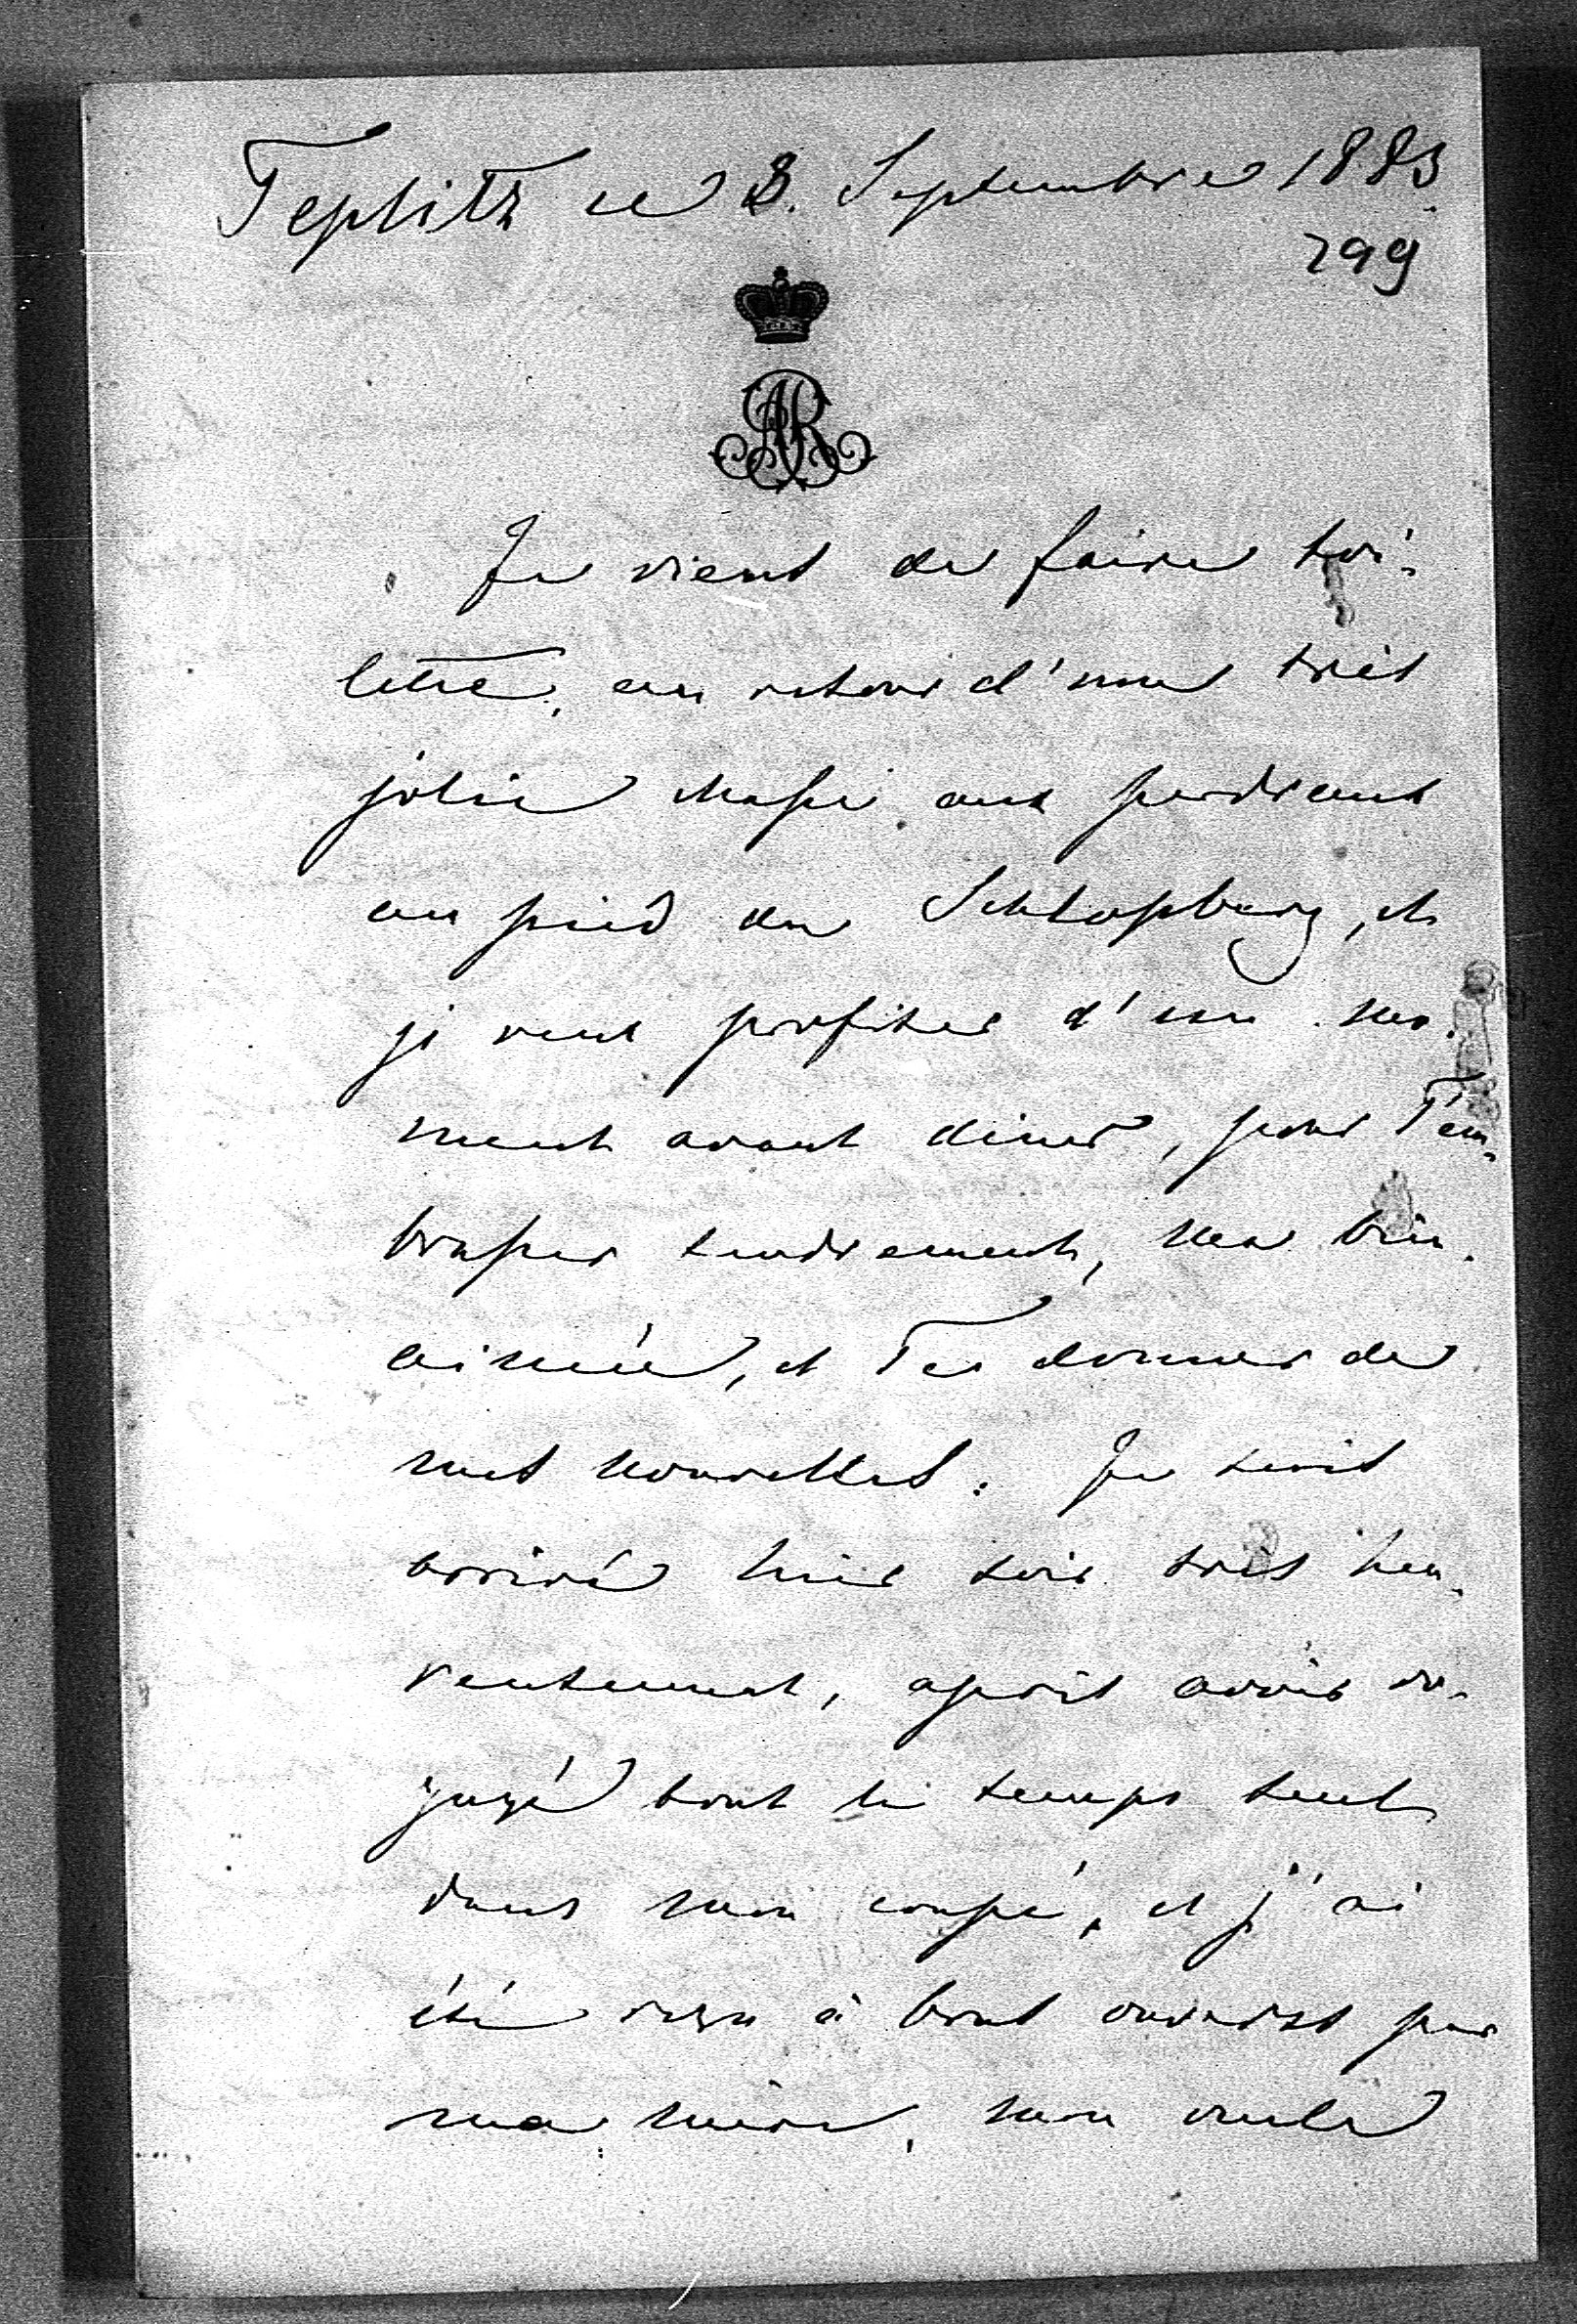 Teplitz ce 3. Septembre 1883.
299
AR
Je viens de faire toi-
lette, au retour d'une très
jolie chasse aux perdreaux
au pied du Schlossberg, et
je veux profiter d'un mo-
ment avant diner, pour T'em-
brasser tendrement, ma bien
aimée, et Te donner de
mes nouvelles. Je suis
arrivé hier soir très heu-
reusement, après avoir vo-
yagé tout le temps seul
dans mon coupé, et j'ai
été reçu à bras ouverts par
ma mère, mon oncle